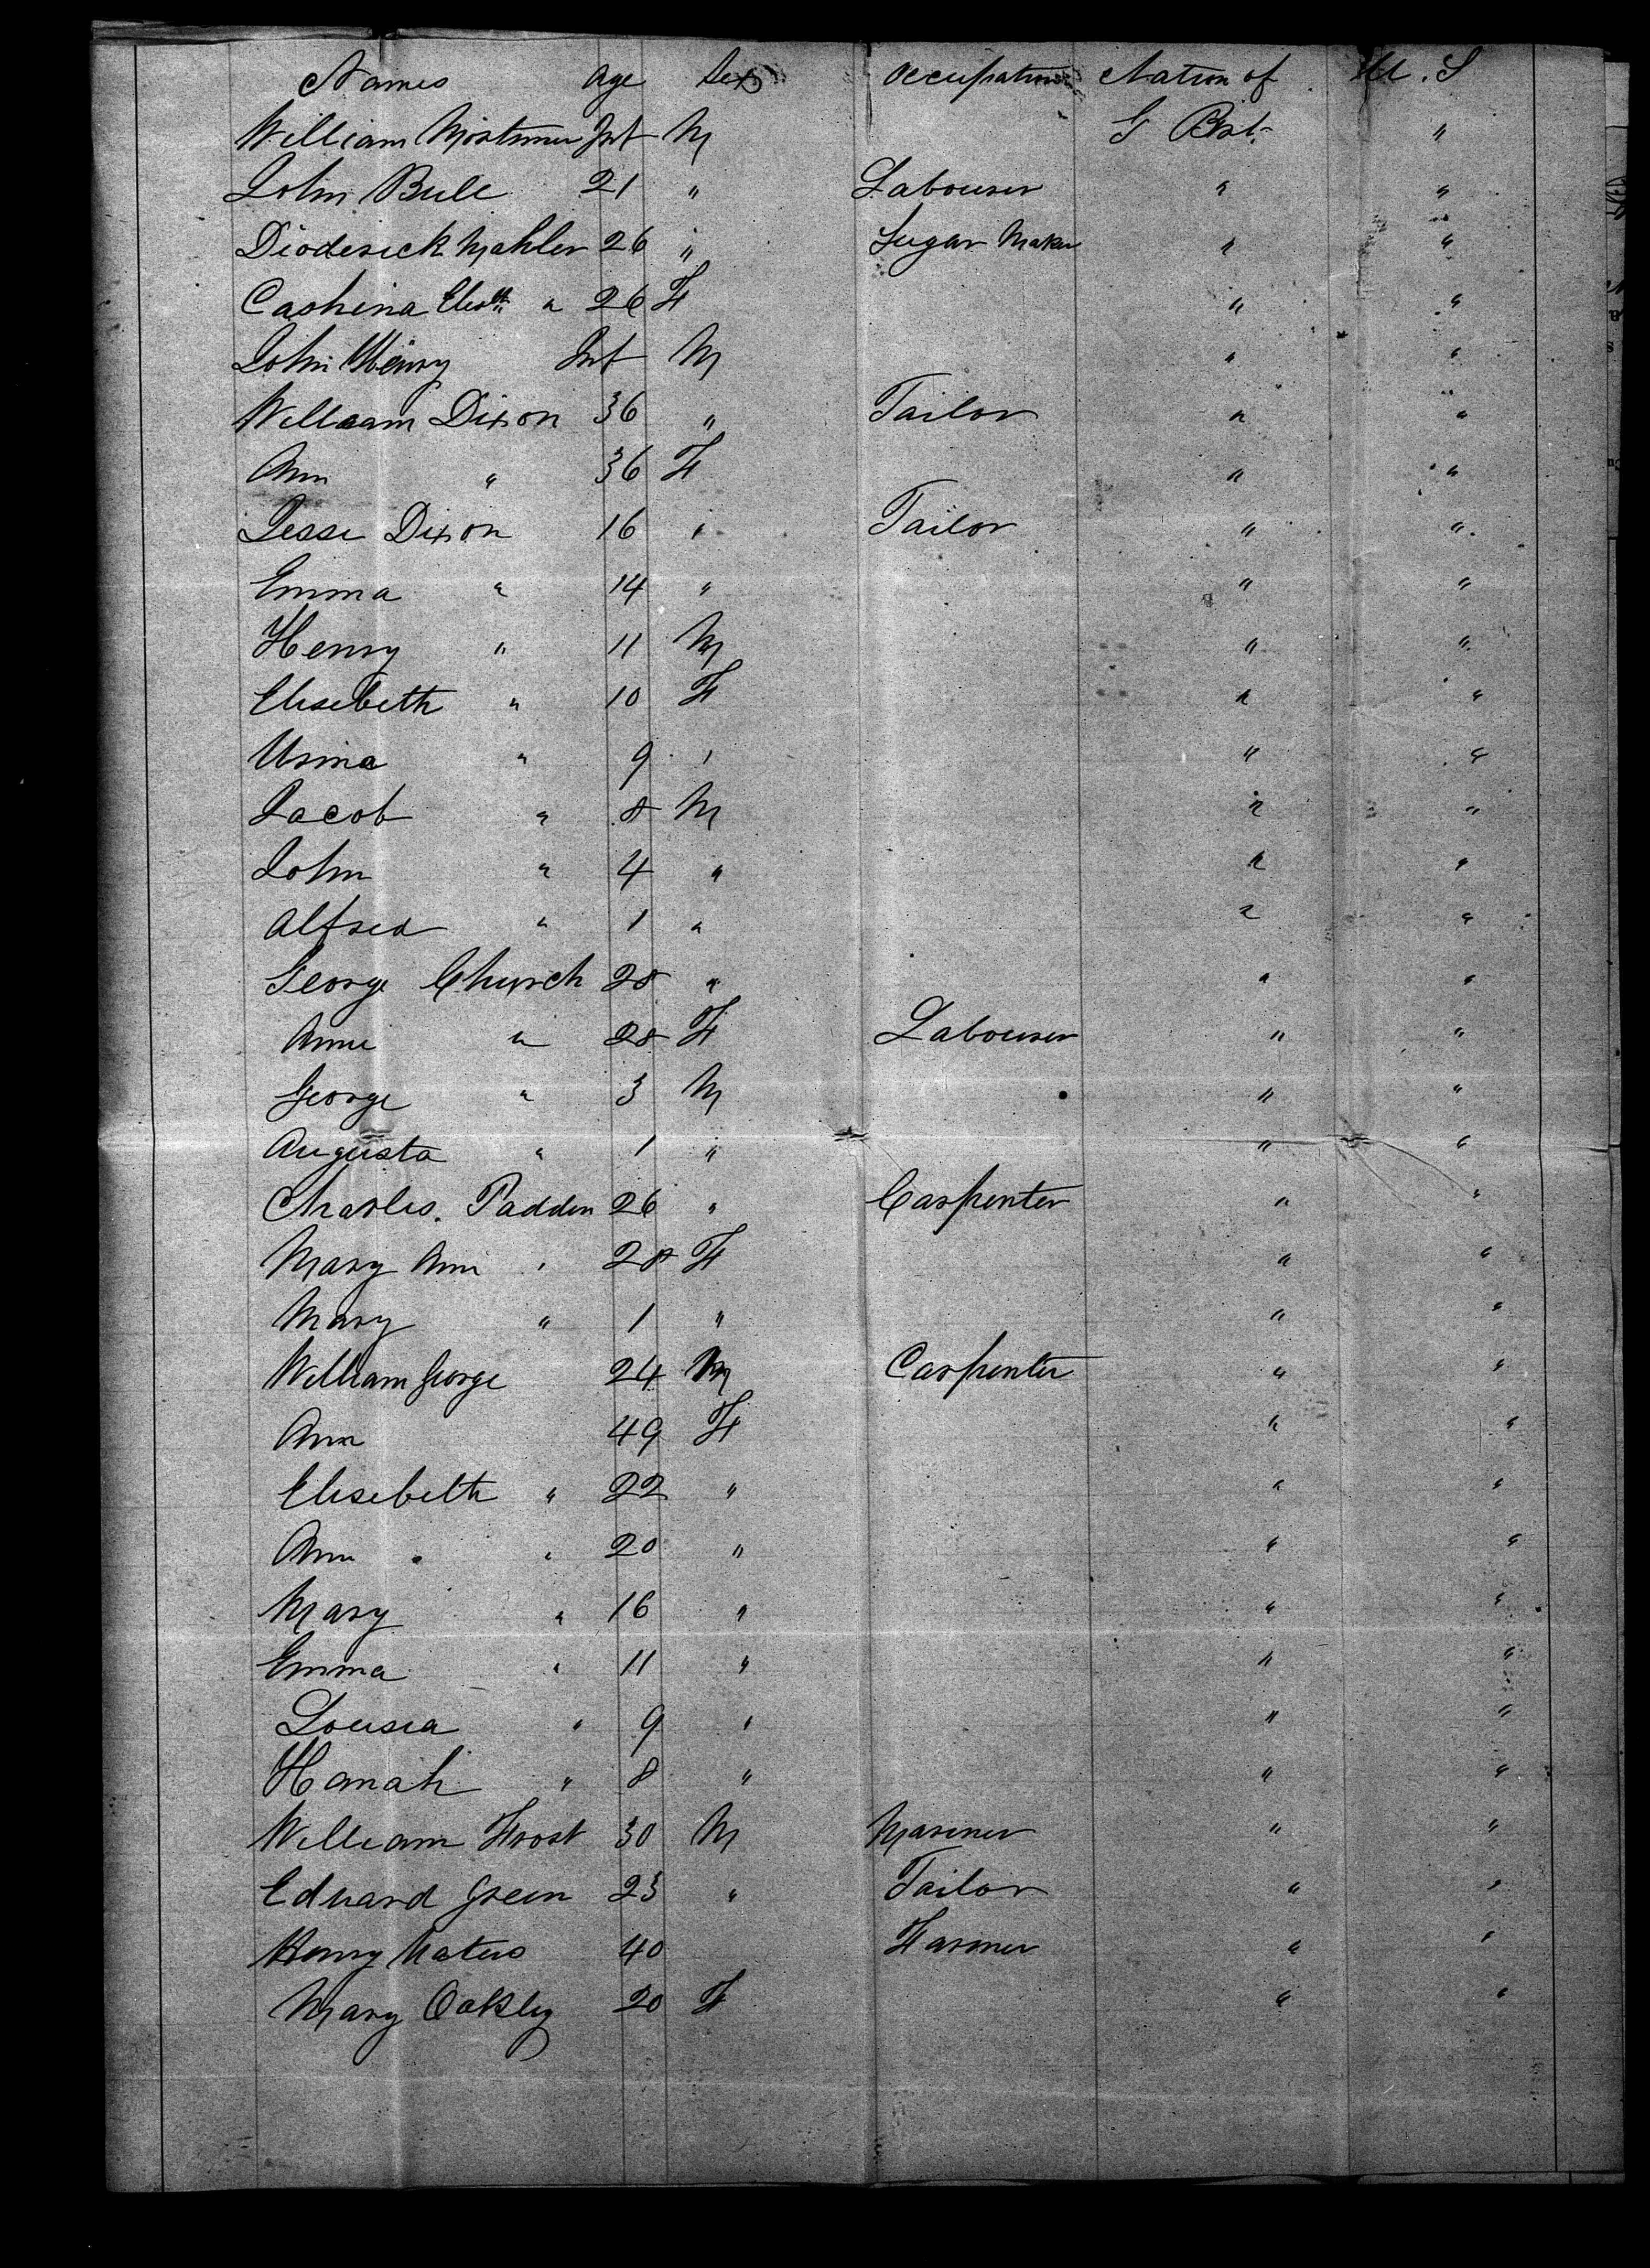 Names Age Sex Occupation Nation of U. S
William Mortimer Inf M G Brit. "
John Bull 21 " Labourer " "
Dioderick Mahler 26 " Sugar Maker " "
Cashina " 26 F " "
John Henry Inf M " "
William Dixon 36 " Tailor " "
Ann " 36 F " "
Jesse Dixon 16 " Tailor " "
Emma " 14 " " "
Henry " 11 M " "
Elisebeth " 10 F " "
" 9 " " "
Jacob " 8 M " "
John " 4 " " "
Alfred " 1 " " "
George Church 28 " " "
Anne " 28 F Labourer " "
George " 3 M " "
Augusta " 1 " " "
Charles. Padden 26 " Carpenter " "
Mary Ann " 28 F " "
Mary " 1 " " "
William George 24 M Carpenter " "
Ann 49 F " "
Elisebelth " 22 " " "
Ann " 20 " " "
Mary " 16 " " "
Emma " 11 " " "
Lousia " 9 " " "
Hanah " 8 " " "
William Frost 30 M Mariner " "
Edward Green 23 " Tailor " "
Henry 40 Farmer " "
Mary Oakley 20 F " "